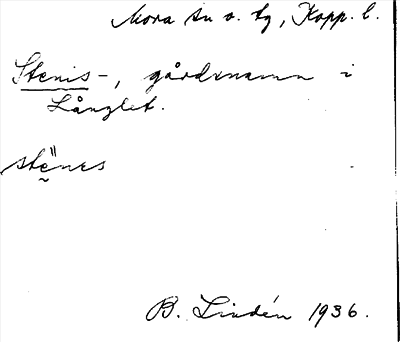 Mora sn o. tg, Kopp. l.
Stenis-, gårdsnamn i
Långlet.
stënes
B. Lindén 1936.